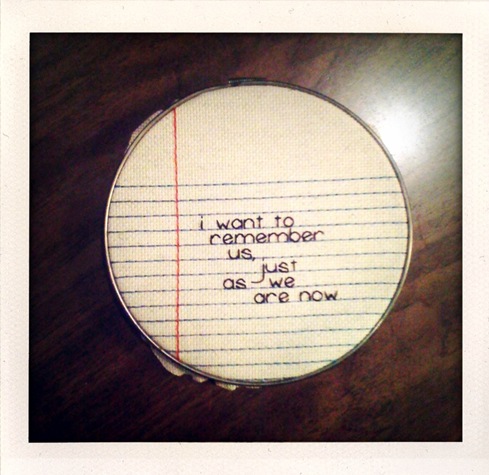 i want to
remember
us,
just
as we
are now